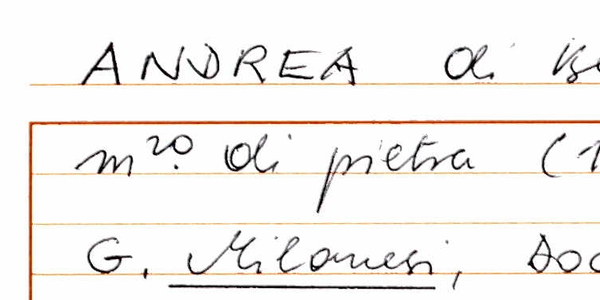 ANDREA di
m.ro di pietra (1
G. Milanesi, Doc